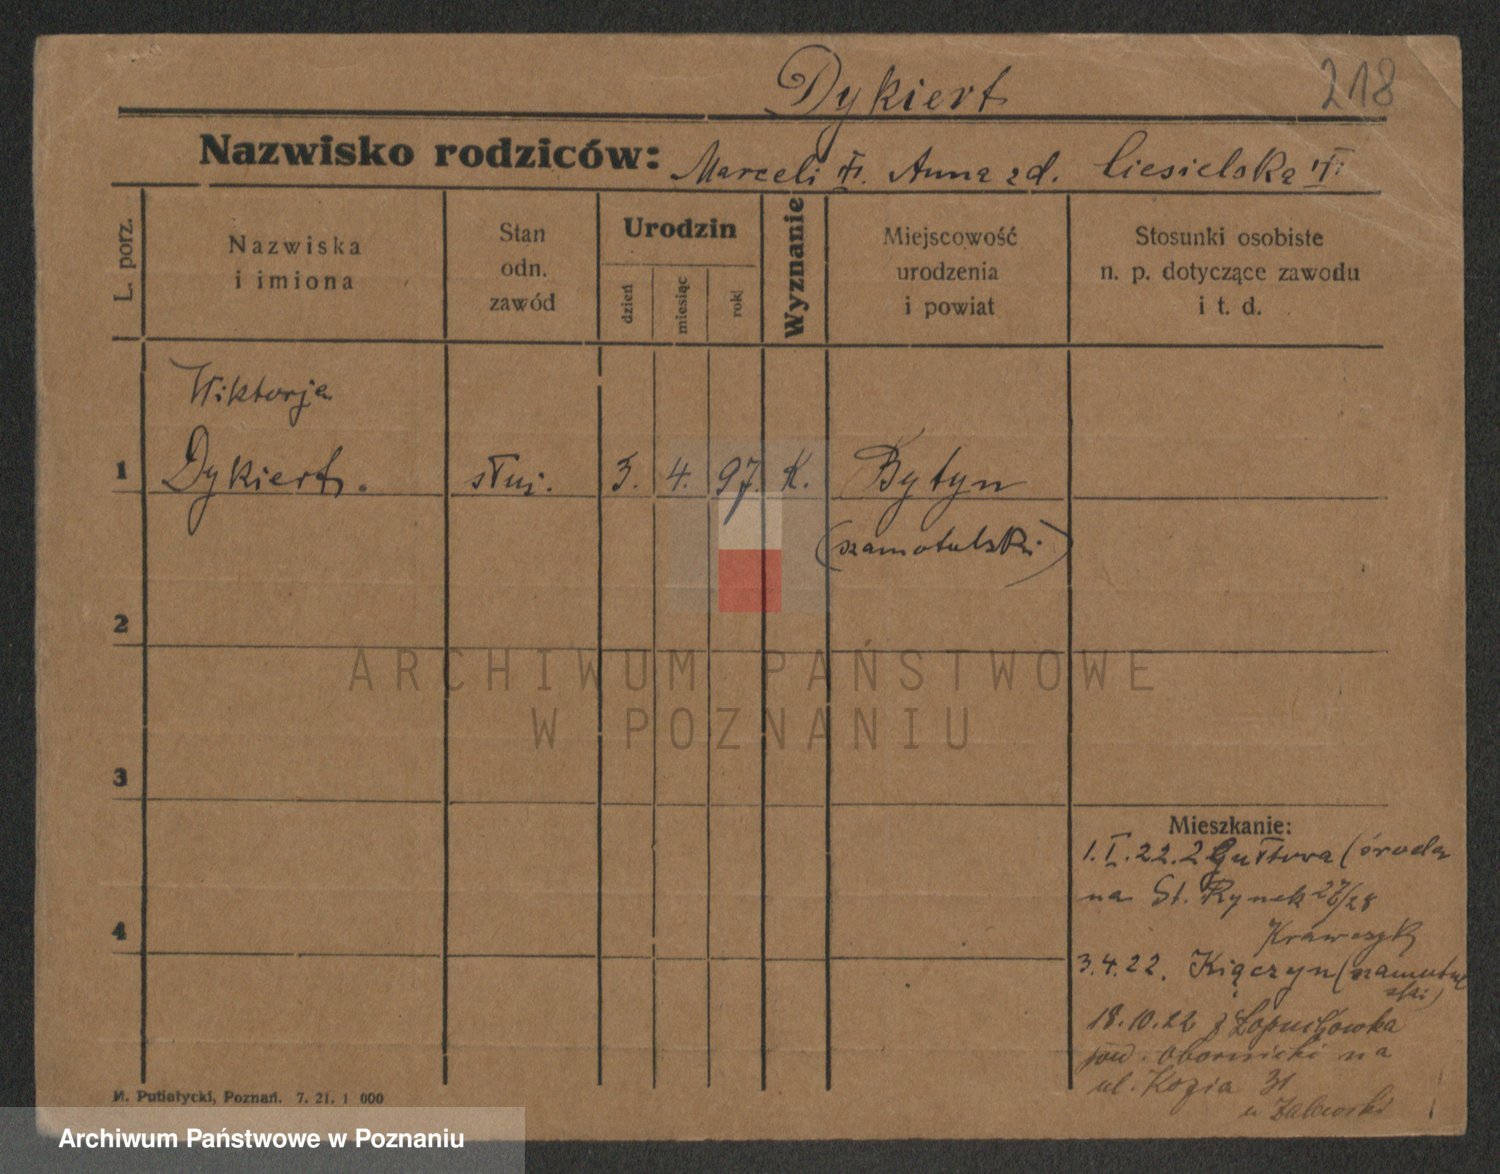 Dykiert
218
Nazwisko rodziców: Marceli Anna zd. Ciesielska
L. porz.
Nazwiska
i imiona
Stan
odn.
zawód
Urodzin
dzień
miesiąc
rok
Wyznanie
Miejscowość
urodzenia
i powiat
Stosunki osobiste
n. p. dotyczące zawodu
i t. d.
Wiktorja
1 Dykiert. służ. 3. 4. 97. K. Bytyn
(szamotulski)
2
ARCHIWUM PAŃSTWOWE
W POZNANIU
3
Mieszkanie:
1. I. 22. z Gułtowa (środa
na St. Rynek 27/28
4
Krawczyk
3.4.22. Kiączyn (szamotul
ski)
18.10.22 z Łopuchówka
pow. obornicki na
ul. Kozia 31
u Zalewski
M. Putiatycki, Poznań. 7. 21. 1 000
Archiwum Państwowe w Poznaniu